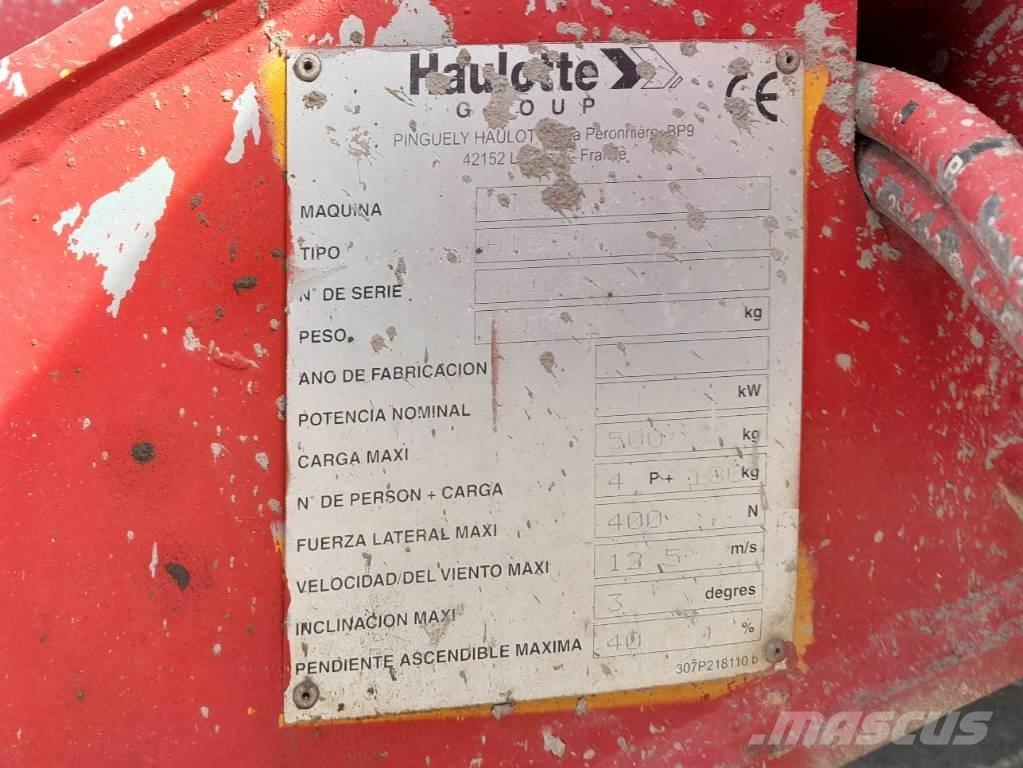 Haulotte
GROUP
CE
PINGUELY HAULOT Péronnière BP9
42152 France
MAQUINA
TIPO
N° DE SERIE
PESO kg
ANO DE FABRICACION
POTENCIA NOMINAL kW
CARGA MAXI 500 kg
N° DE PERSON + CARGA 4 P+ 180 kg
FUERZA LATERAL MAXI 400 N
VELOCIDAD/DEL VIENTO MAXI 12,5 m/s
INCLINACION MAXI 3 degres
PENDIENTE ASCENDIBLE MAXIMA 40 %
307P218110 b
MASCUS